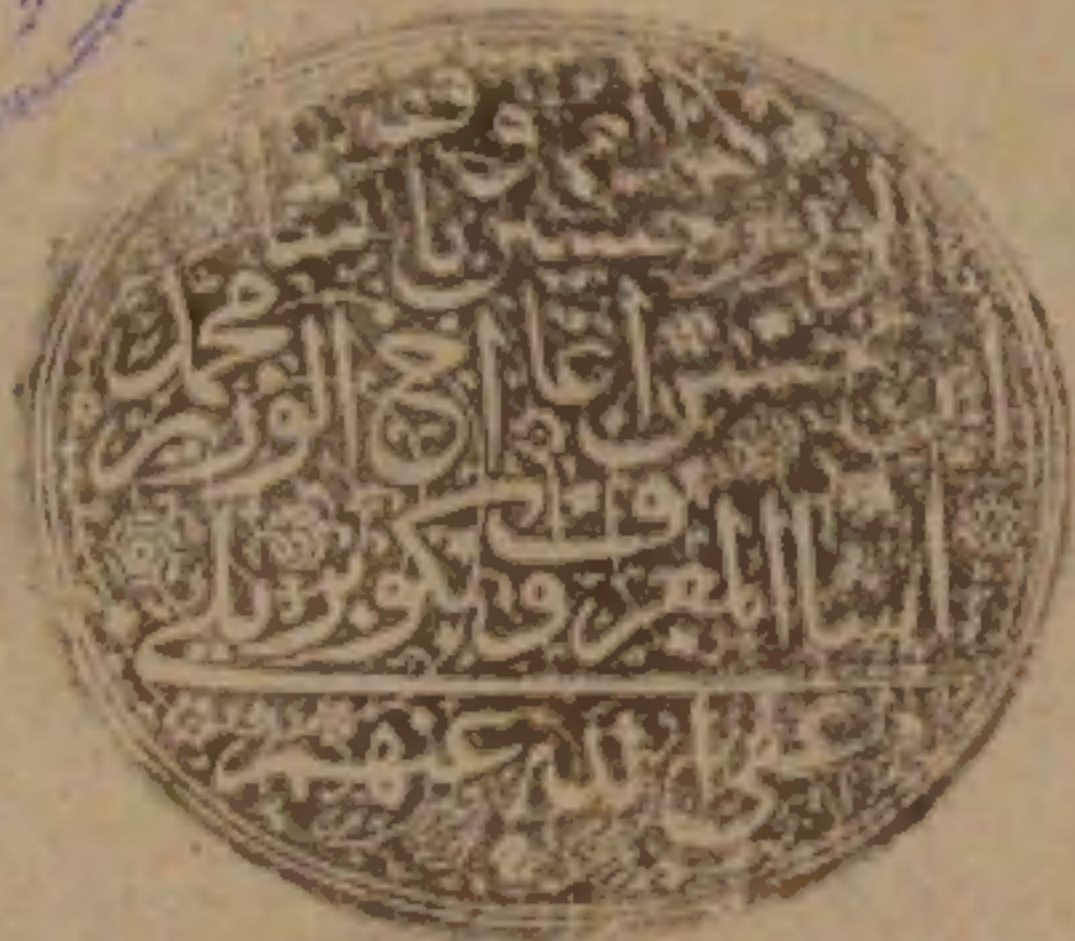 وقف
الوزير حسين باشا
ابن حسن اغا اخ الوزير محمد
باشا المعروف بكوبريلي
عفى الله عنهم